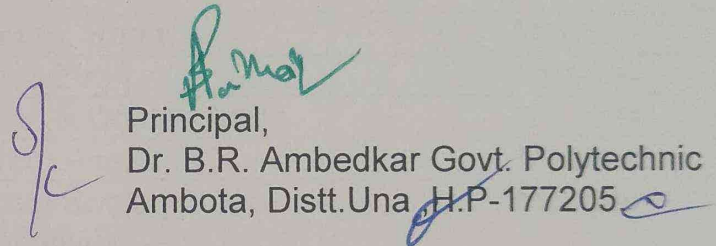 Principal,
Dr. B.R. Ambedkar Govt. Polytechnic
Ambota, Distt.Una ,H.P-177205